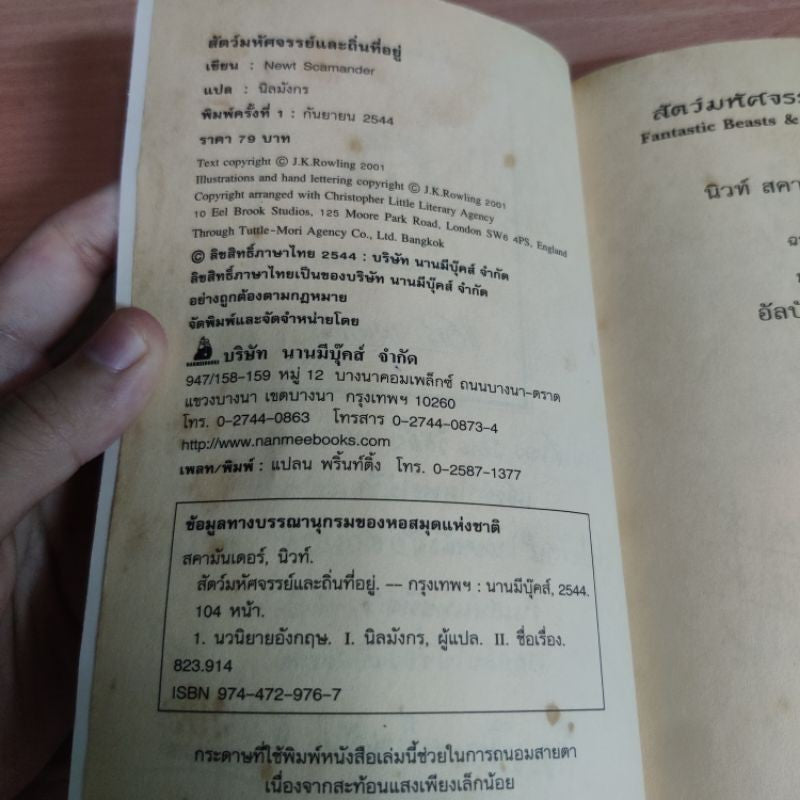 สัตว์มหัศจรรย์และถิ่นที่อยู่
เขียน : Newt Scamander
แปล : นิลมังกร
พิมพ์ครั้งที่ 1 : กันยายน 2544
ราคา 79 บาท
Text copyright © J.K.Rowling 2001
Illustrations and hand lettering copyright © J.K.Rowling 2001
Copyright arranged with Christopher Little Literary Agency
10 Eel Brook Studios, 125 Moore Park Road, London SW6 4PS, England
Through Tuttle-Mori Agency Co., Ltd. Bangkok
© ลิขสิทธิ์ภาษาไทย 2544 : บริษัท นานมีบุ๊คส์ จำกัด
ลิขสิทธิ์ภาษาไทยเป็นของบริษัท นานมีบุ๊คส์ จำกัด
อย่างถูกต้องตามกฎหมาย
จัดพิมพ์และจัดจำหน่ายโดย
บริษัท นานมีบุ๊คส์ จำกัด
947/158-159 หมู่ 12 บางนาคอมเพล็กซ์ ถนนบางนา-ตราด
แขวงบางนา เขตบางนา กรุงเทพฯ 10260
โทร. 0-2744-0863 โทรสาร 0-2744-0873-4
http://www.nanmeebooks.com
เพลท/พิมพ์ : แปลน พริ้นท์ติ้ง โทร. 0-2587-1377
ข้อมูลทางบรรณานุกรมของหอสมุดแห่งชาติ
สคามันเดอร์, นิวท์.
สัตว์มหัศจรรย์และถิ่นที่อยู่. -- กรุงเทพฯ : นานมีบุ๊คส์, 2544.
104 หน้า.
1. นวนิยายอังกฤษ. I. นิลมังกร, ผู้แปล. II. ชื่อเรื่อง.
823.914
ISBN 974-472-976-7
กระดาษที่ใช้พิมพ์หนังสือเล่มนี้ช่วยในการถนอมสายตา
เนื่องจากสะท้อนแสงเพียงเล็กน้อย
สัตว์มหัศจรร
Fantastic Beasts &
นิวท์ สคา
อัลบั